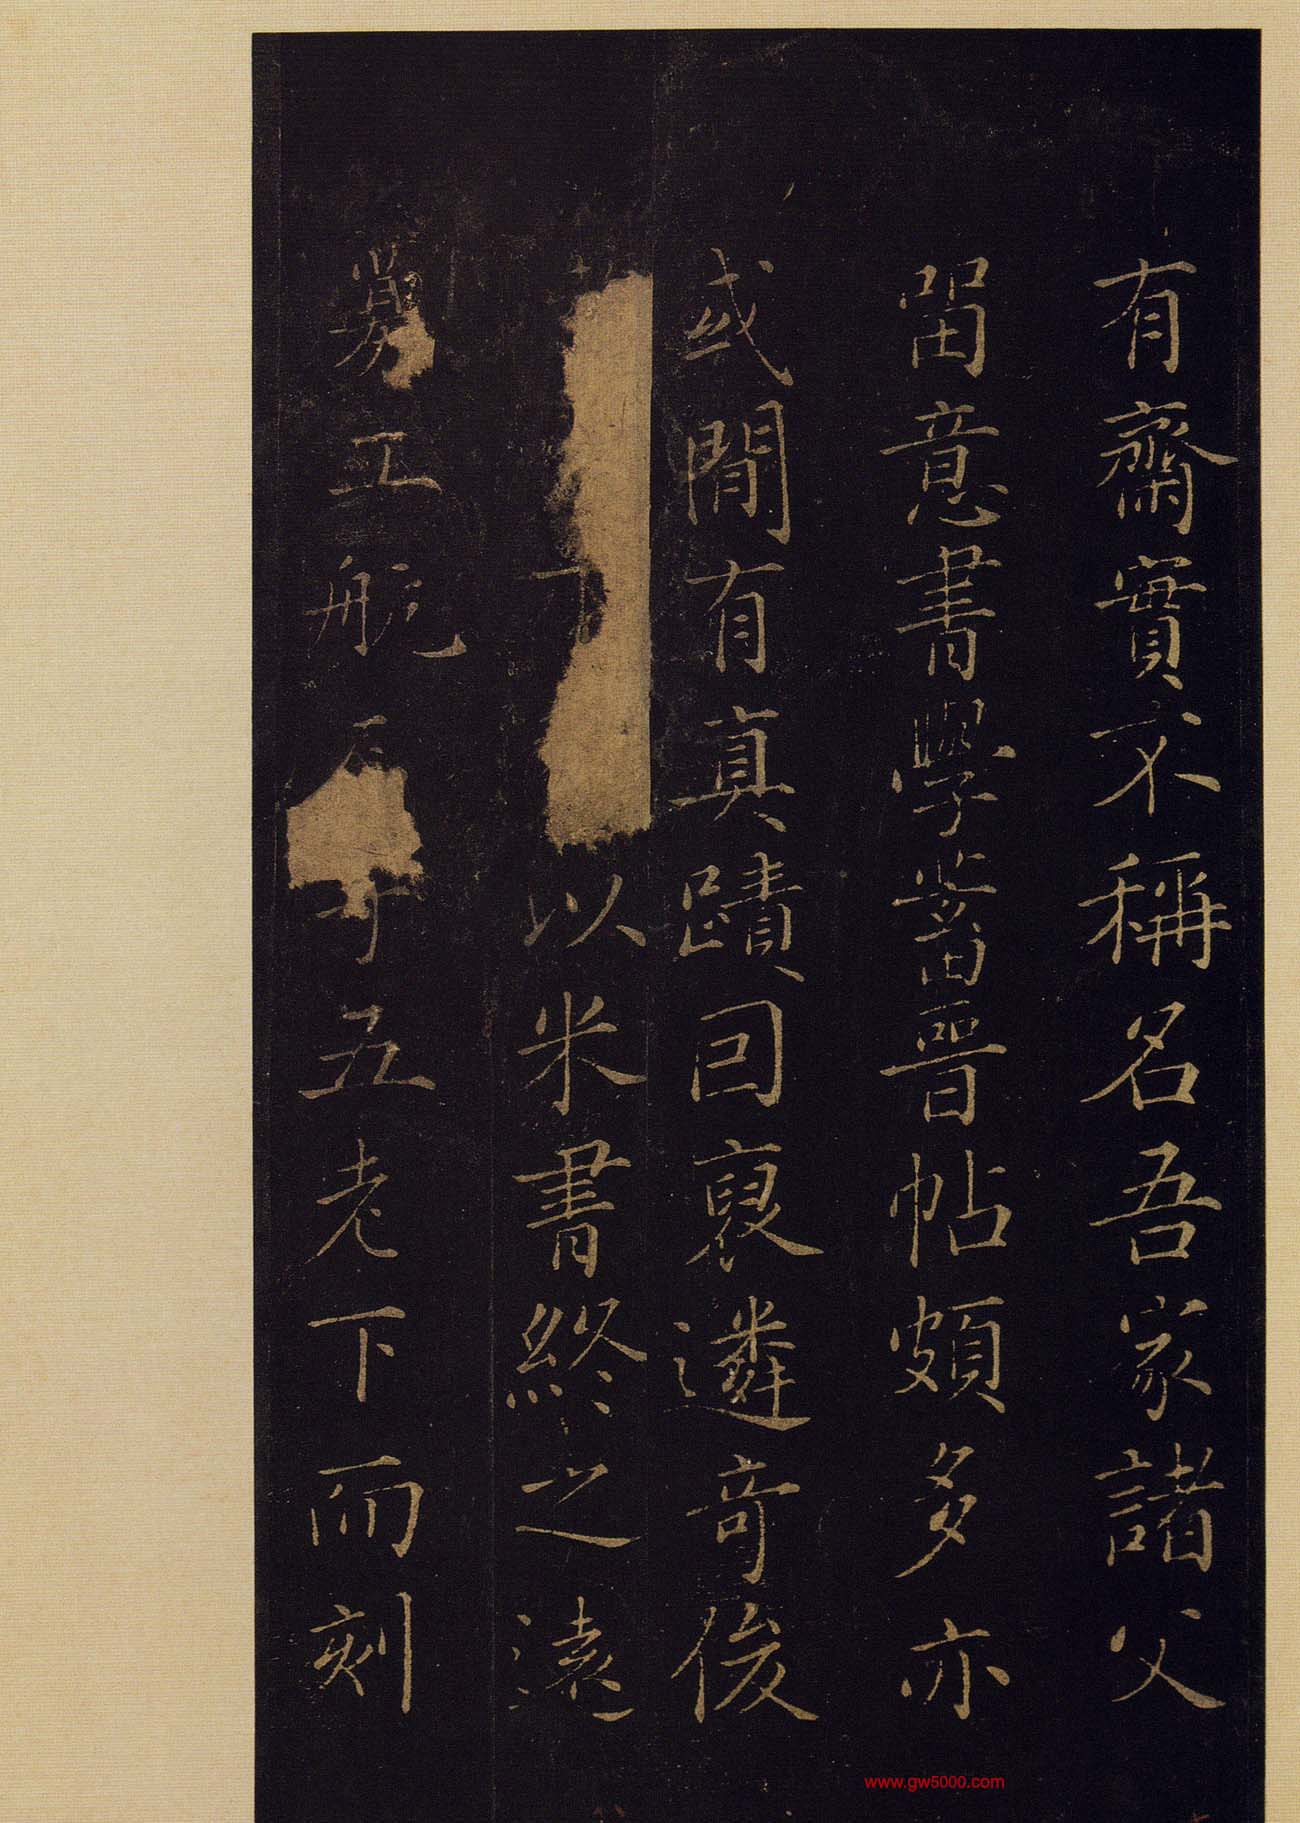 有齋實不稱名吾家諸父
留意書學舊晉帖頗多亦
或閒有真蹟因裒遴奇後
以米書終之遠
募工航石于五老下而刻
www.gw5000.com